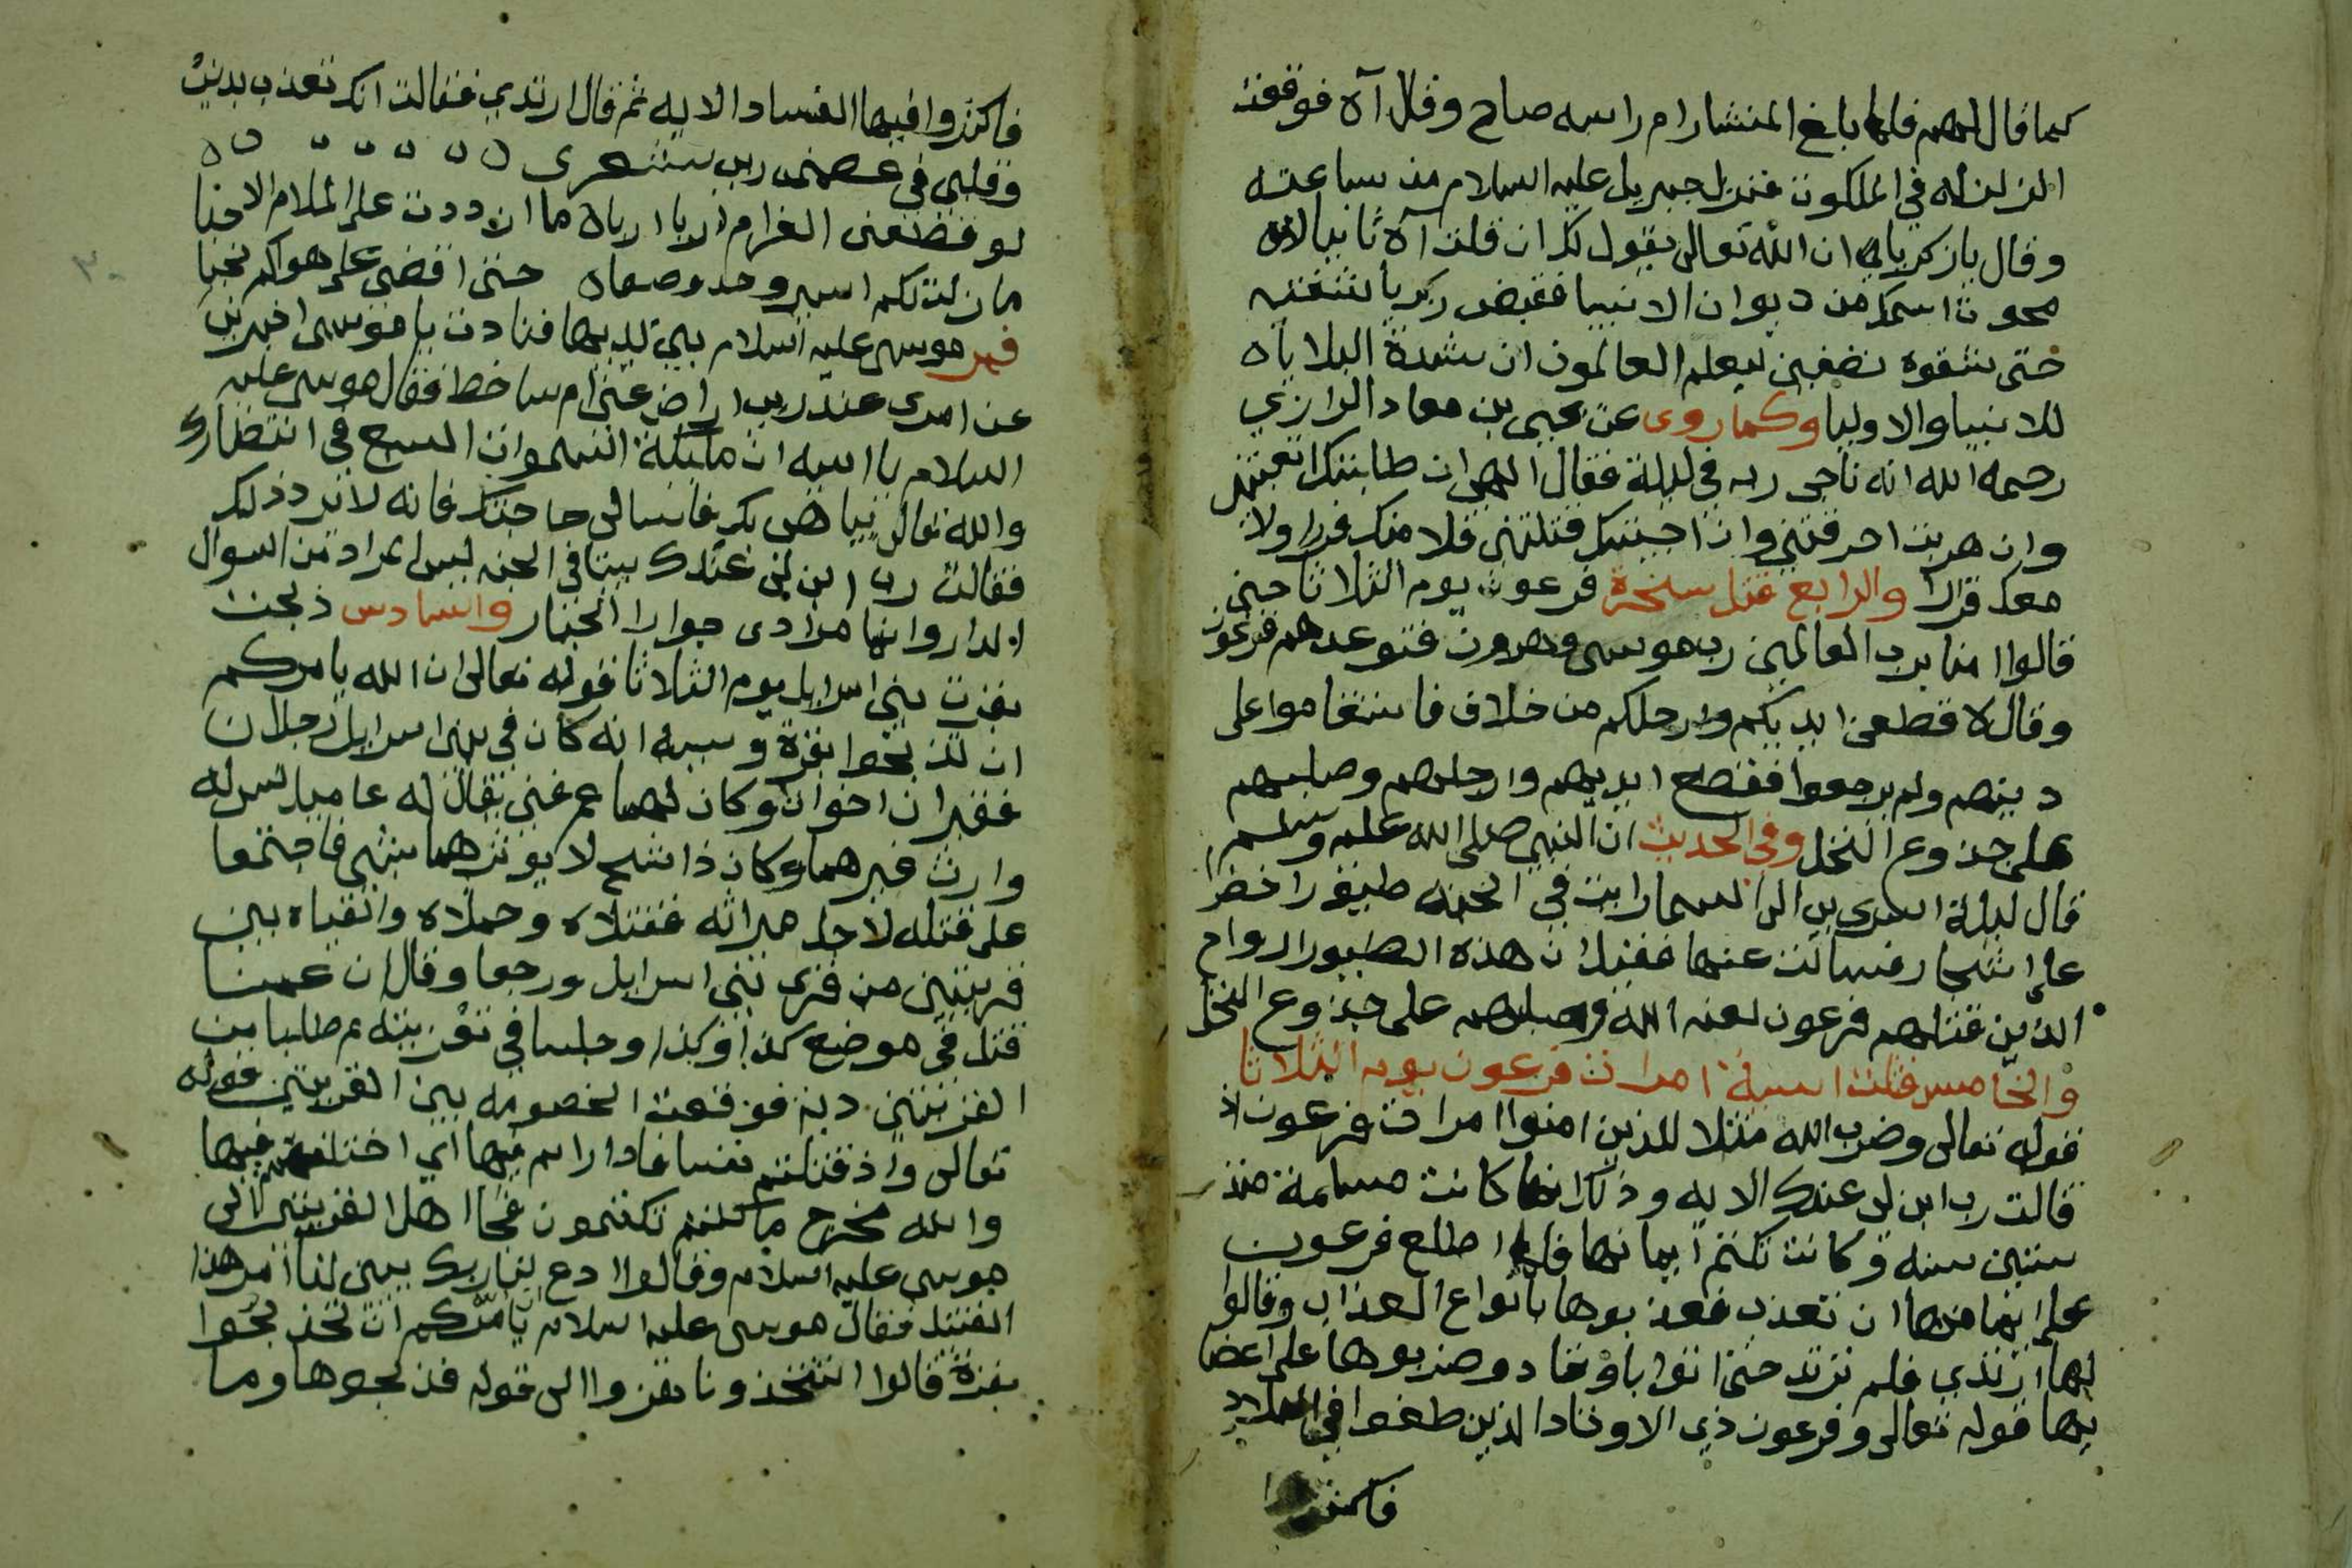 كما قال لهم فلما بلغ المنشار ام راسه صاح وقال آه فوقعت
الزلزله في الملكوت فنزل جبريل عليه السلام من ساعته
وقال يا زكريا ان الله تعالى يقول لك ان قلت آه ثانيا لا
محوت اسمك من ديوان الانبيا فقبض زكريا شفتيه
حتى شقوه نصفين ليعلم العالمون ان شدة البلايا ه
للانبيا والاوليا وكما روى عن يحيى بن معاد الرازي
رحمه الله انه ناجى ربه في ليلة فقال الهي ان طلبتك اتعبتني
وان هربت احرقتني وان احببتك قتلتني فلا منك فرارا ولا
معك قرارا والرابع قتل سحرة فرعون يوم الثلاثا حين
قالوا امنا برب العالمين رب موسى وهرون فتوعدهم فرعون
وقال لا قطعن ايديكم وارجلكم من خلاف فاستقاموا على
دينهم ولم يرجعوا فقطع ايديهم وارجلهم وصلبهم
على جذوع النخل وفي الحديث ان النبي صلى الله عليه وسلم
قال ليلة اسرى بي الى السما رايت في الجنه طيورا خضرا
على اشجار فسالت عنها فقيل ان هذه الطيور ارواح
الذين قتلهم فرعون لعنه الله وصلبهم على جذوع النخل
والخامس قتلت اسية امرات فرعون يوم الثلاثا
قوله تعالى وضرب الله مثلا للذين امنوا امرات فرعون اذ
قالت رب ابن لى عندك الايه وذلك انها كانت مسلمة منذ
ستين سنه وكانت تكتم ايمانها فلما اطلع فرعون
على ايمانها ان تعذب فعذبوها بانواع العذاب وقالوا
لها ارتدي فلم ترتد حتى اتوا باوتاد وضربوها على اعضا
يها قوله تعالى وفرعون ذي الاوتاد الذين طغوا في البلاد
فاكثروا
فاكثروا فيها الفساد الايه ثم قال ارتدي فقالت انك تعذب بدني
وقلبي في عصمة ربي شعرى
لو قطعني الغرام اربا اربا ه ما ازددت على الملام الا حبا
ما زلت بكم اسير وجد وصبا ه حتى اقضى على هواكم نحبا
فمر موسى عليه السلام بين يديها فنادت يا موسى اخبرني
عن امري عند ربي اراض عني ام ساخط فقال موسى عليه
السلام يا اسيه ان مليكة السموات السبع في انتظارك
والله تعالى يباهى بك فاسالى حاجتك فانه لا يرد ذلك
فقالت رب ابن لى عندك بيتا في الجنه ليس المراد من السوال
الدار وانما مرادى جوار الجبار والسادس ذبحت
بقرت بني اسرايل يوم الثلاثا قوله تعالى ان الله يامركم
ان تذبحوا بقرة وسببه انه كان في بني اسرايل رجلان
فقيران اخوان وكان لهما عم غني يقال له عاميل ليس له
وارث غيرهما وكان ذا شح لا يوثرهما بشي فاجتمعا
على قتله لاجل ميراثه فقتلاه وحملاه والقياه بين
قريتين من قرى بني اسرايل ورجعا وقال ان عمنا
قتل في موضع كذا وكذا وجلسا في تعزيته ثم طلبا من
القريتين دية فوقعت الخصومه بين القريتين قوله
تعالى واذ قتلتم نفسا فادارا تم فيها اي اختلفتم فيها
والله مخرج ما كنتم تكتمون فجاا اهل القريتين الى
موسى عليه السلام وقالوا ادع لنا ربك يبين لنا امر هذا
القتيل فقال موسى عليه السلام يامركم ان تذبحوا
بقرة قالوا اتتخذونا هزوا الى قوله فذبحوها وما